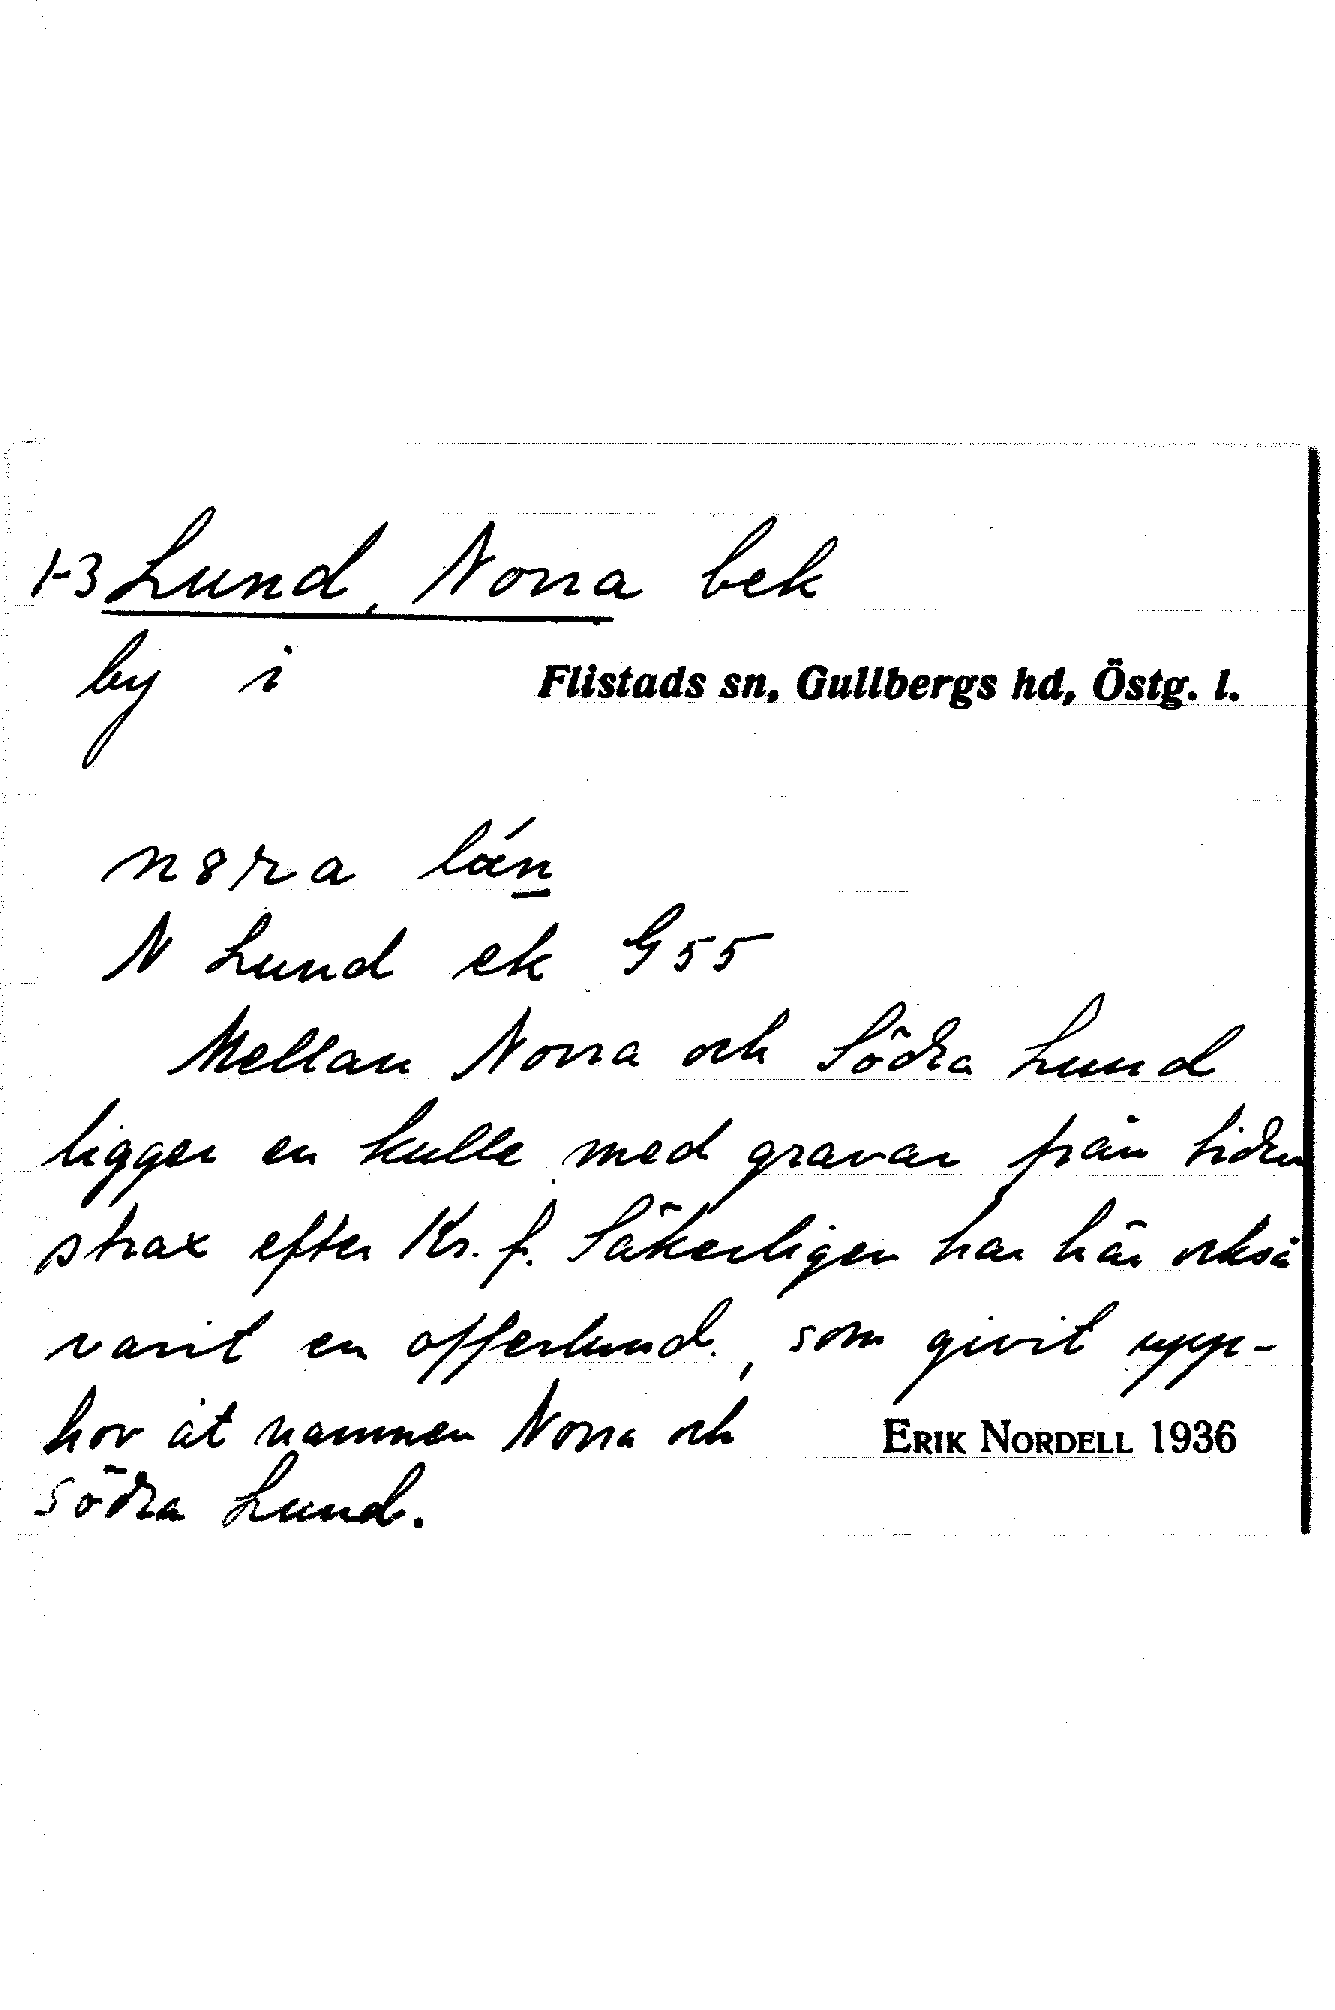 1-3 Lund, Norra bek
by i Flistads sn, Gullbergs hd, Östg. l.
N Lund ek G 55
Mellan Norra och Södra Lund
ligger en kulle med gravar från tiden
strax efter Kr. f. Säkerligen har här också
varit en offerlund, som givit upp-
hov åt namnen Norra och ERIK NORDELL 1936
södra Lund.